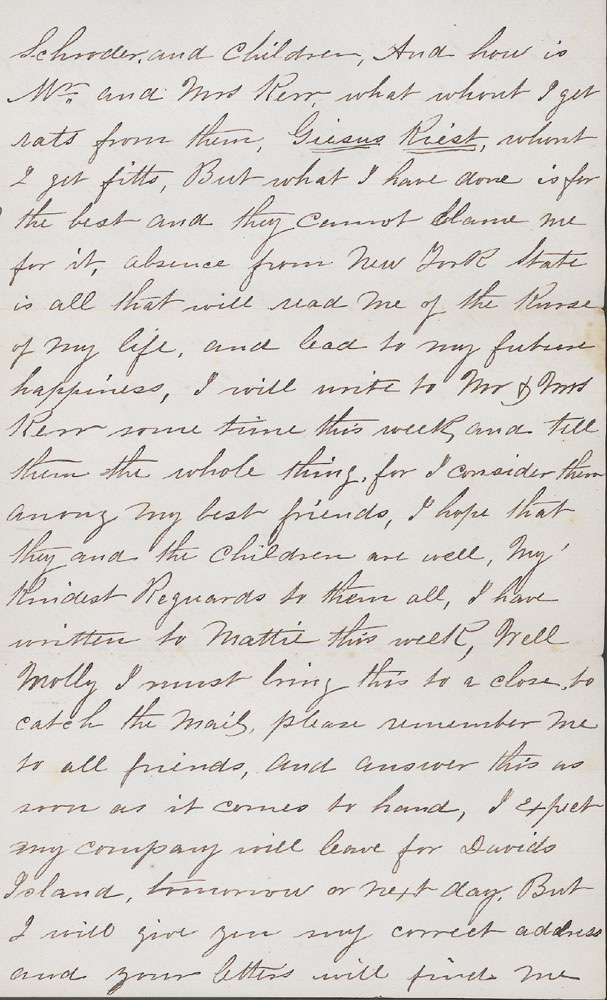 Schroder, and children, And how is
Mr. and Mrs Kerr, what whont I get
rats from them, Giesus Kriest, whont
I get fitts, But what I have done is for
the best and they cannot blame me
for it, absence from New York State
is all that will read me of the Kurse
of my life, and lead to my future
happiness, I will write to Mr & Mrs
Kerr some time this week, and tell
them the whole thing, for I consider them
among my best friends, I hope that
they and the children are well, My
Kindest Reguards to them all, I have
written to Mattie this week, Well
Molly I must bring this to a close, to
catch the Mail, please remember me
to all friends, and answer this as
soon as it comes to hand, I Expect
my company will leave for Davids
Island, tomorrow or next day. But
I will give you my correct address
and your letters will find me